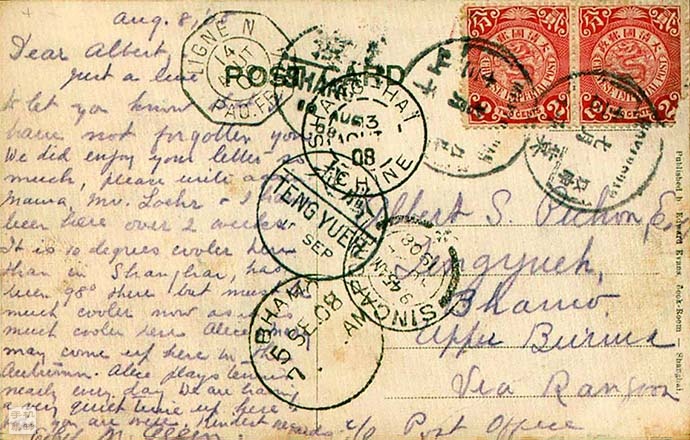 Aug. 8/08
Dear Albert,
Just a line
to let you know that
have not forgotten you
We did enjoy your letter so
much, please write again
Mama, Mr. Loehr & I have
been here over 2 weeks
It is 10 degrees cooler here
than in Shanghai, has
been 98° there but must be
much cooler now as it is
much cooler here Alice
may come up here in the
Autumn. Alice plays tennis
nearly every day. We are having
a very quiet time up here
you were kindest regards
POST CARD
LIGNE N
PAQ. FR.
SHANGHAI
AUG
SHANG-HAI
CHINE
08
TENGYUEH
SEP
BHAMO
5 SE.08
AM
SINGAPORE
1908
大清國郵政
貳分
2 CENTS
大清國郵政
貳分
2 CENTS
Albert S. Pichon, Esq
Tengyueh,
Bhamo
Upper Burma
Via Rangoon
c/o Post Office
Published by Edward Evans, Book-Room — Shanghai